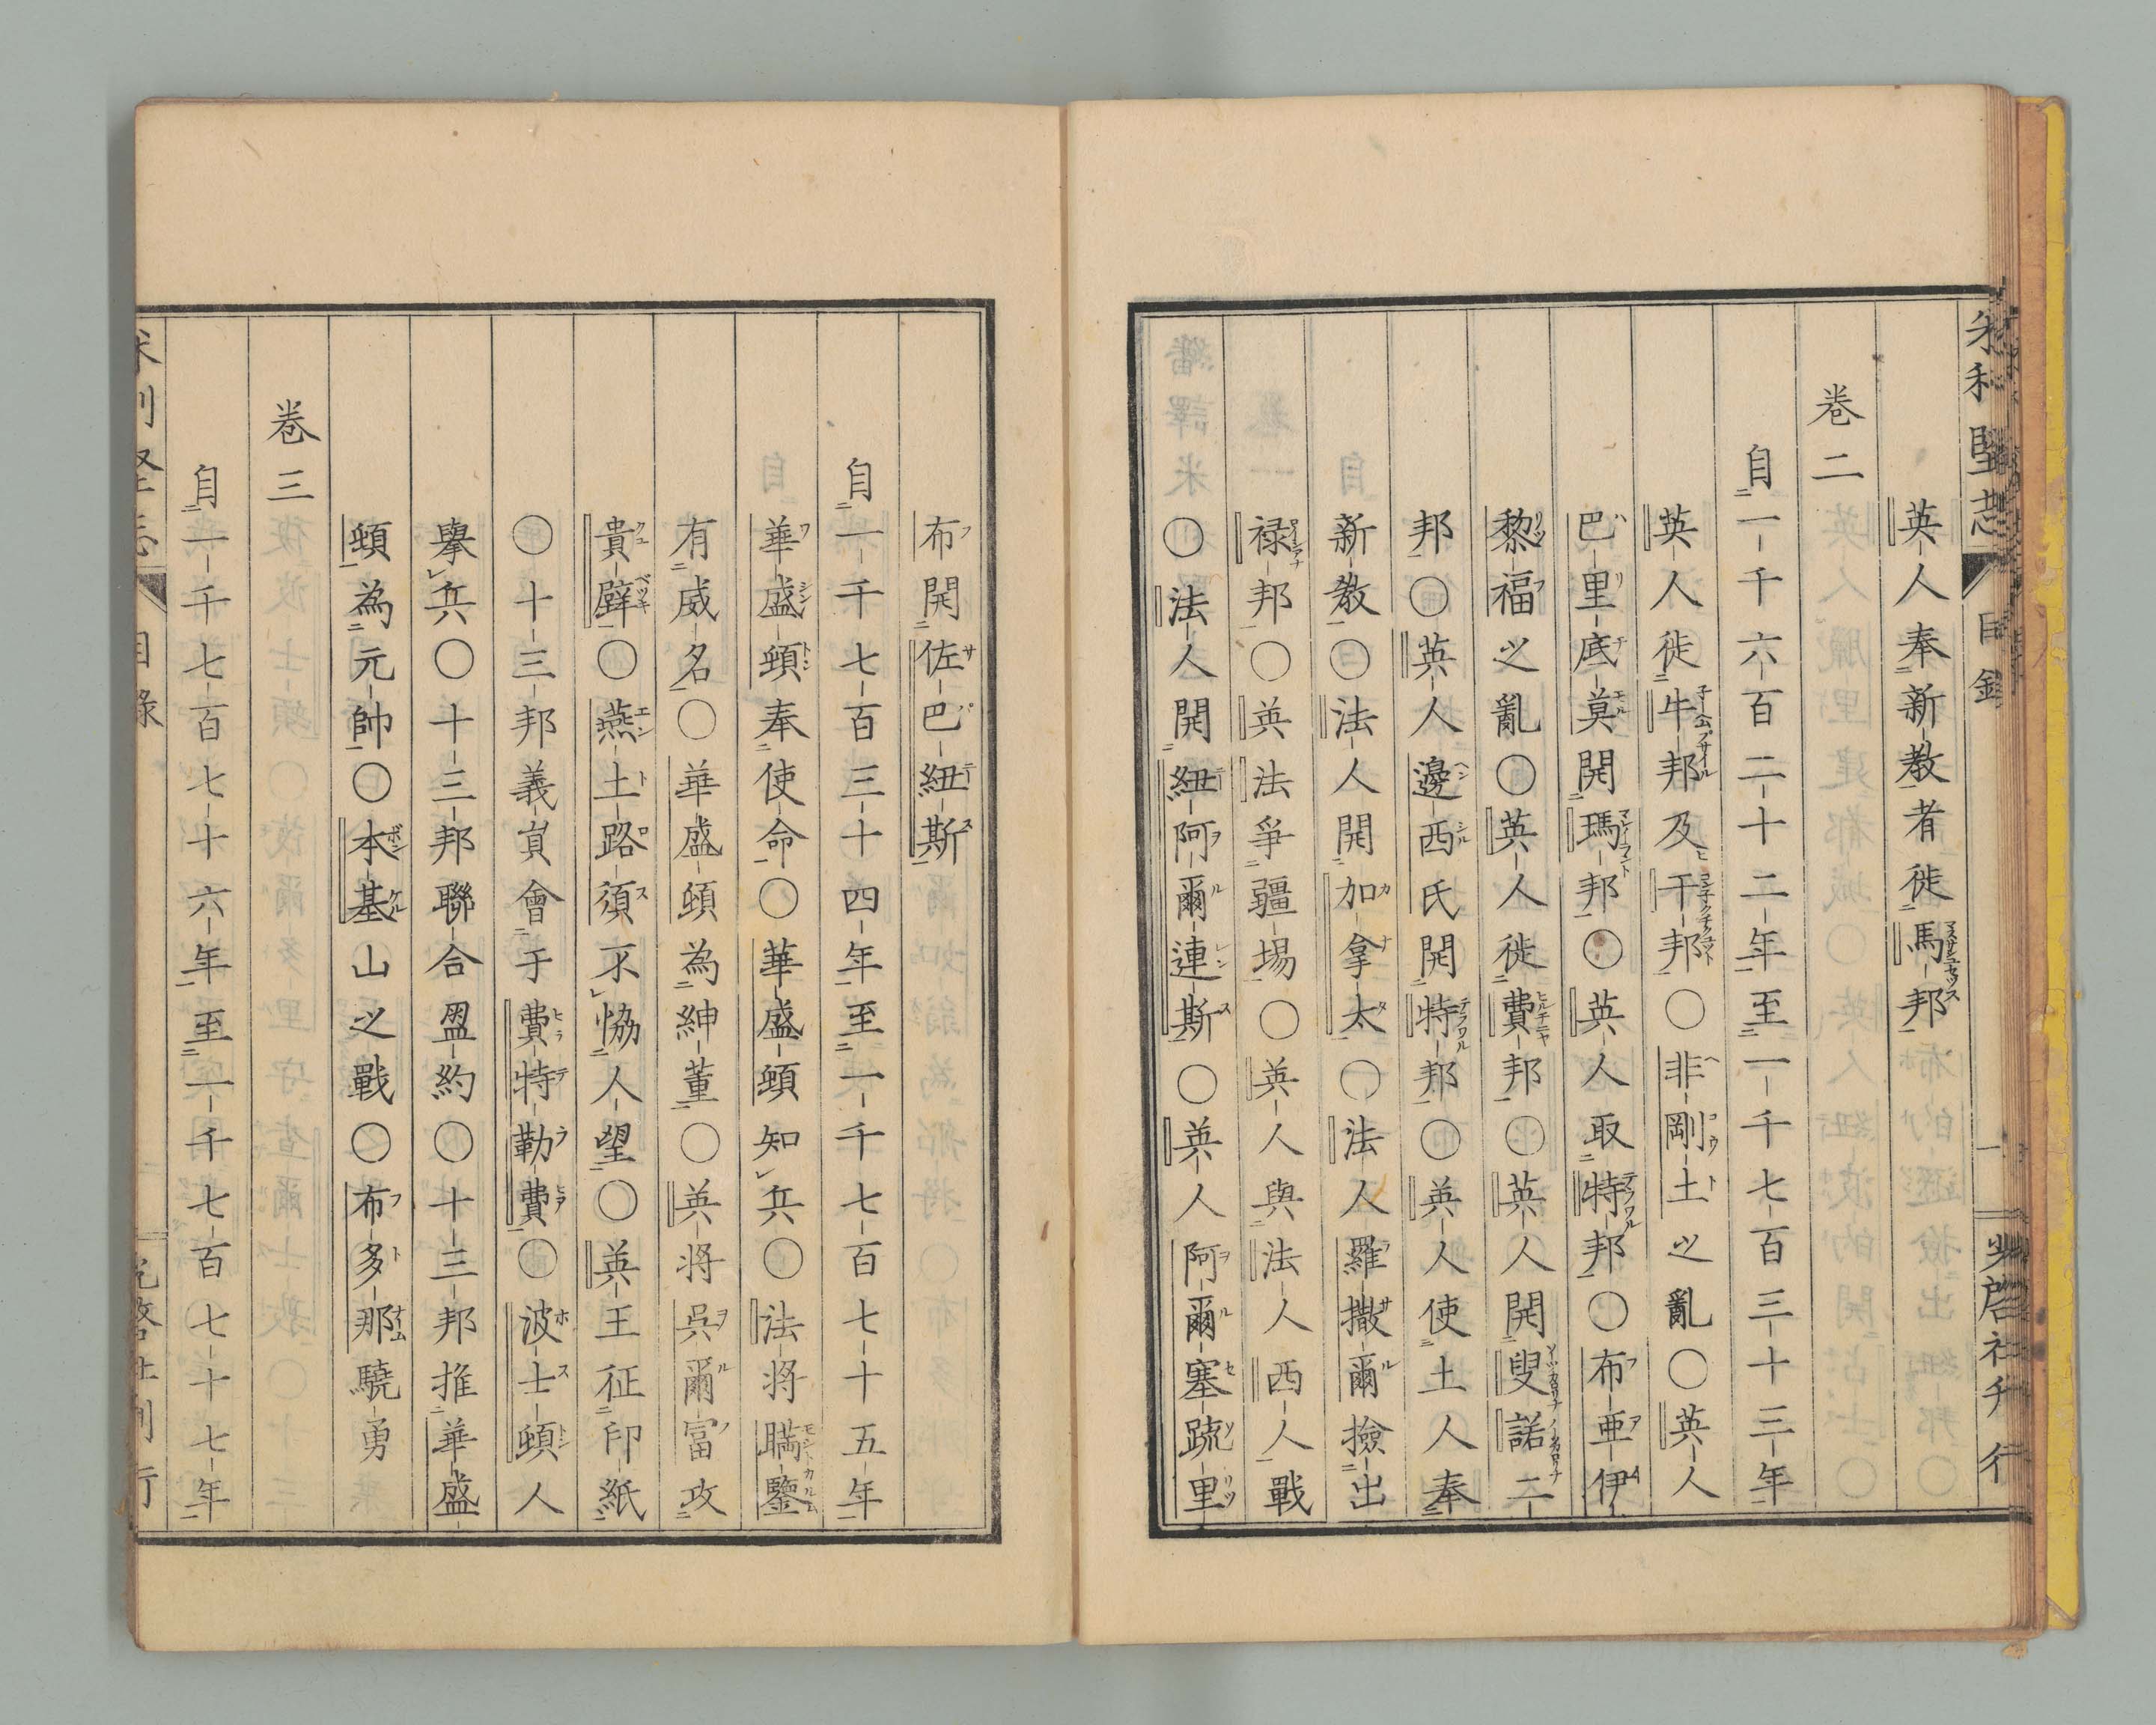 米利堅志 目錄 一
英人奉新教者徙馬邦
卷二
自一千六百二十二年至一千七百三十三年
英人徙牛邦及干邦○非剛土之亂○英人
巴里底莫開瑪邦○英人取特邦○布亜伊
黎福之亂○英人徙費邦○英人開叟諾二
邦○英人邊西氏開特邦○英人使土人奉
新教○法人開加拿太○法人羅撒爾撿出
禄邦○英法爭疆埸○英人與法人西人戰
○法人開紐阿爾連斯○英人阿爾塞䟽里
布開佐巴紐斯
自一千七百三十四年至一千七百七十五年
華盛頓奉使命○華盛頓知兵○法将瞞鑒
有威名○華盛頓為紳董○英将呉爾富攻
貴壁○燕土路須不協人望○英王征印紙
○十三邦義員會于費特勒費○波士頓人
擧兵○十三邦聯合盟約○十三邦推華盛
頓為元帥○本基山之戰○布多那驍勇
卷三
自一千七百七十六年至一千七百七十七年